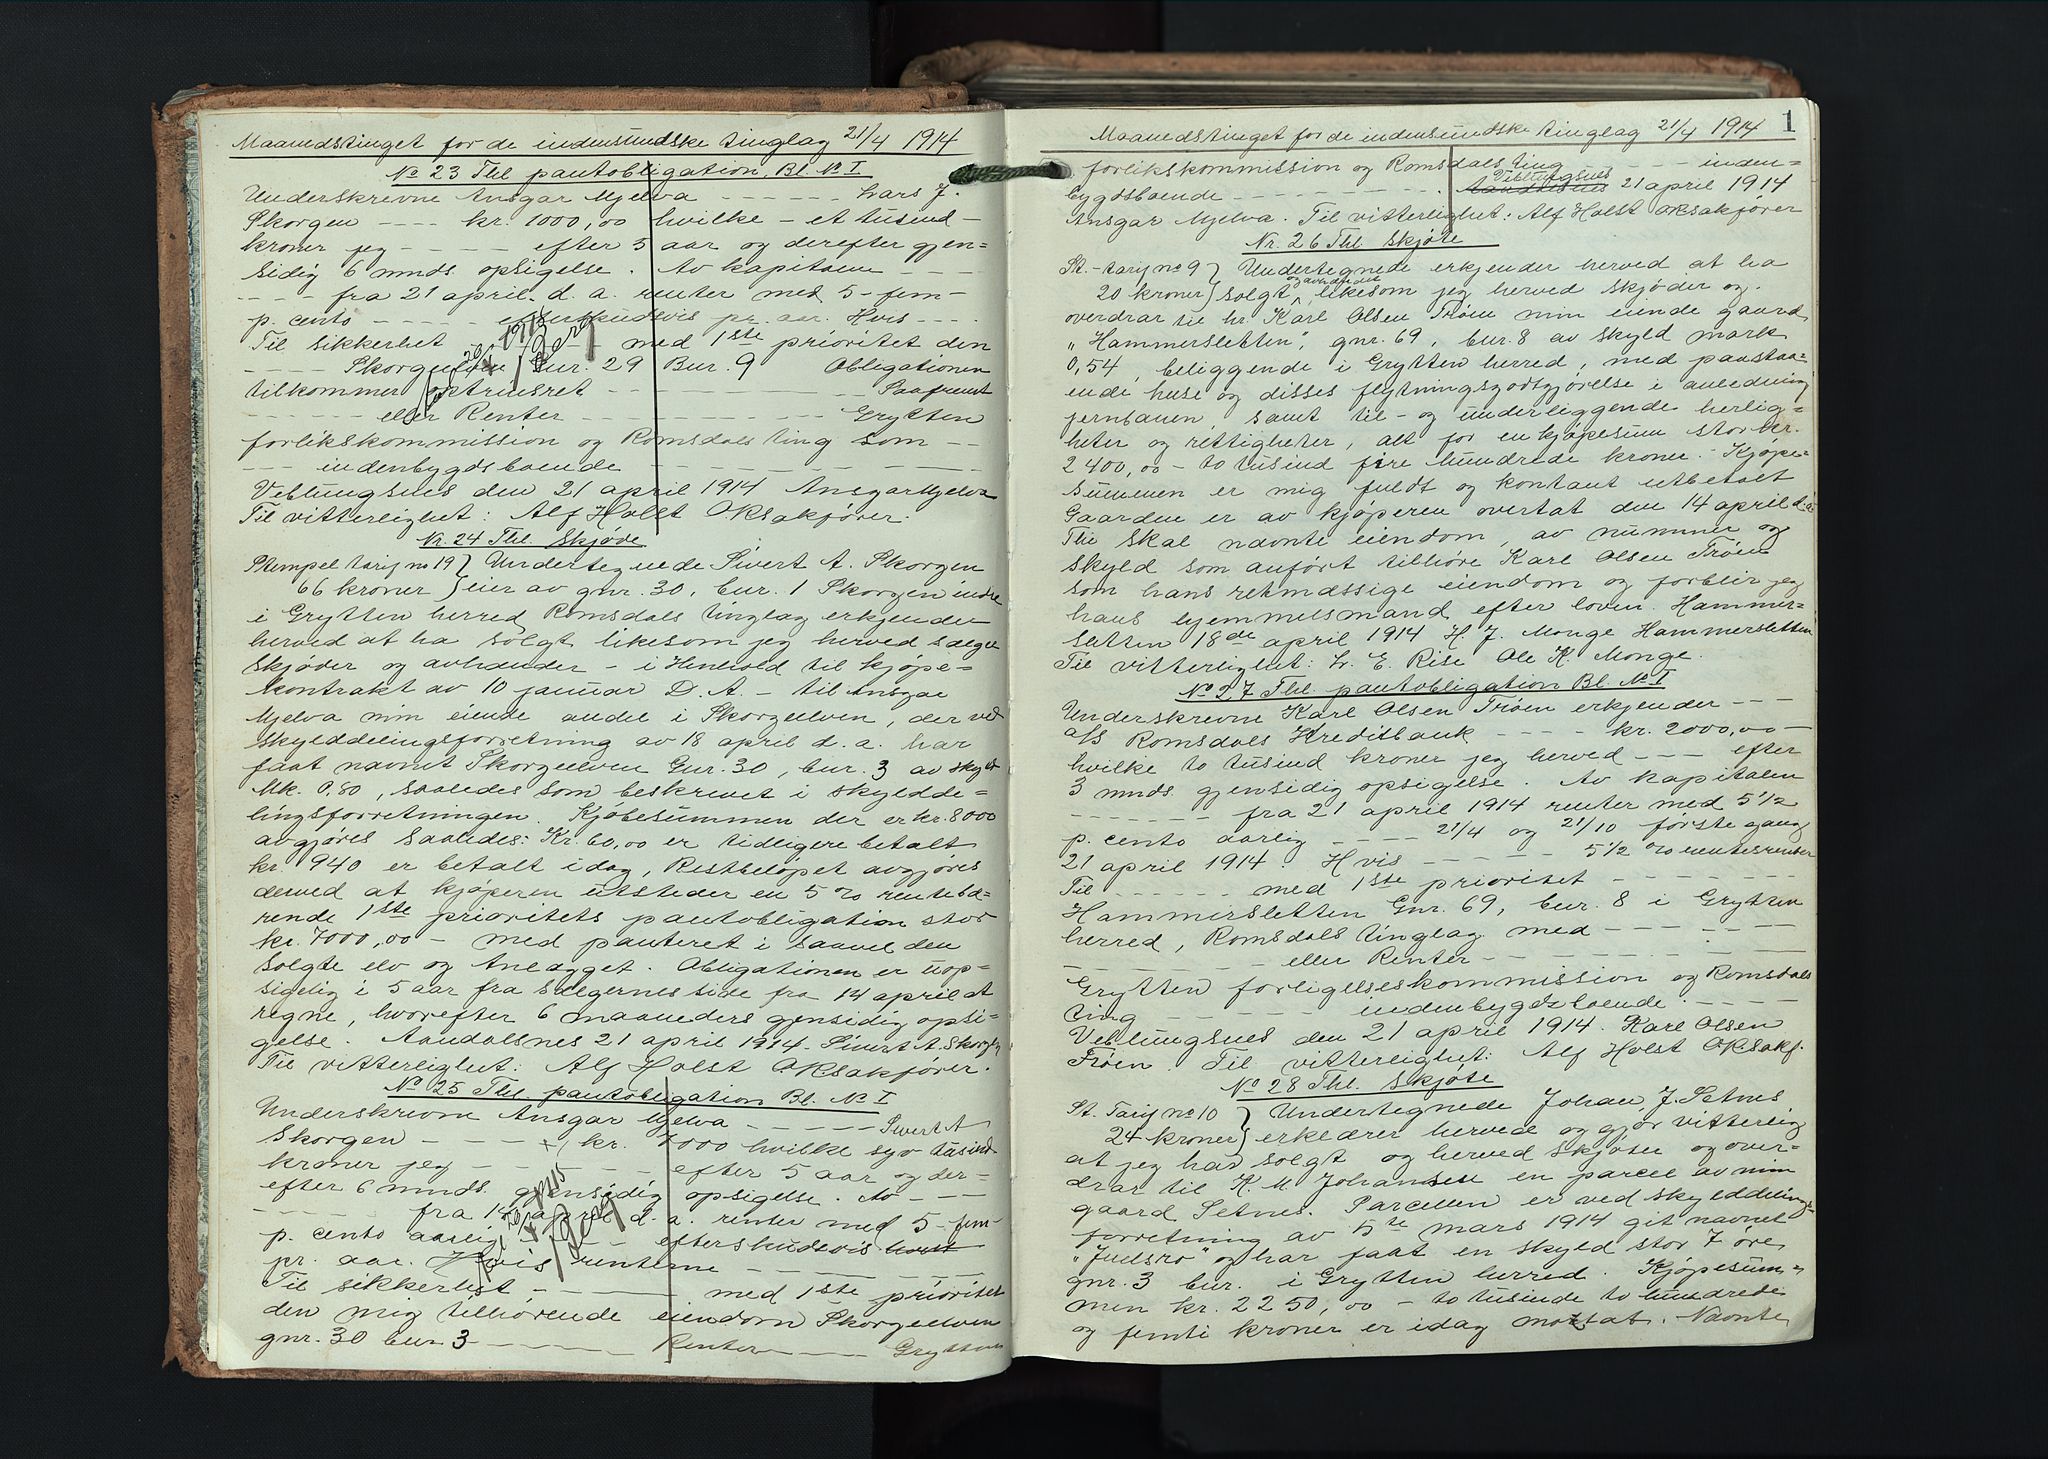 Maanedstinget for de indensundske tinglag 21/4 1914
No 23 Thl. pantobligation Bl. No I
Underskrevne Ansgar Mjelva - - - - - - Lars J.
Skorgen - - - - kr. 1000,00 hvilke - et tusind -
kroner jeg - - - - efter 5 aar og derefter gjen=
sidig 6 mnds. opsigelse. Av kapitalen - - -
- - - - fra 21 april d. a. renter med 5 - fem -
p. cento - - - - - efterskudsvis pr. aar. Hvis - - -
Til sikkerhet - - - med 1ste prioritet den
- - - - Skorgeelven Gnr. 29 Bnr. 9 Obligationen
tilkommer - - - - - - -
- - - - - - eller Renter - - - - - - - Grytten
forlikskommission og Romsdals ting som - -
- - - indenbygdsboende - - - - - - - -
Veblungsnes den 21 april 1914 Ansgar Mjelva
Til vitterlighet: Alf Holst OKsakfører.
Nr. 24 Thl. Skjøde
Stempel tarif no 19 } Undertegnede Sivert A. Skorgen
66 kroner } eier av gnr. 30, bnr. 1 Skorgen indre
i Grytten herred Romsdals tinglag erkjender
herved at ha solgt likesom jeg herved sælger
skjøder og avhænder - i Henhold til kjøpe-
kontrakt av 10 januar D. A. - til Ansgar
Mjelva min eiende andel i Skorgeelven, der ved
skylddelingsforretning av 18 april d. a. har
faat navnet Skorgeelven Gnr. 30, bnr. 3 av skyld
Mk. 0,80, saaledes som beskrevet i skyldde=
lingsforretningen. Kjøbesummen der er kr. 8000
avgjøres saaledes: Kr. 60,00 er tidligere betalt
kr. 940 er betalt idag, Restbeløpet avgjøres
derved at kjøperen utsteder en 5 % rentebæ=
rende 1ste prioritets pantobligation stor
kr. 7000,00 - med panteret i saavel den
solgte elv og Anlægget. Obligationen er uop=
sigelig i 5 aar fra sælgernes side fra 14 april at
regne, hvorefter 6 maaneders gjensidig opsi=
gelse. Aandalsnes 21 april 1914. Sivert A. Skorgen
Til vitterlighet: Alf Holst OKsakfører.
No 25 Thl. pantobligation Bl. No I
Underskrevne Ansgar Mjelva - - - - - Sivert A
Skorgen - - - - - kr. 7000 hvilke syv tusind
kroner jeg - - - - - - efter 5 aar og der-
efter 6 mnds. gjensidig opsigelse. Av - - - -
- - - - fra 14 april d. a. renter med 5 - fem -
p. cento aarlig - - - efterskudsvis hvert
pr. aar. Hvis renterne - - - - - - -
Til sikkerhet - - - - - - med 1ste prioritet
den mig tilhørende eiendom Skorgeelven
gnr. 30 bnr 3 - - - - - Renter - - - - Grytten
1
Maanedstinget for de indensundske tinglag 21/4 1914
forlikskommission og Romsdals ting - - - - inden=
bygdsboende - - - - - - - Veblungsnes Aandalsnes 21 april 1914
Ansgar Mjelva. Til vitterlighet: Alf Holst OKsakfører
Nr. 26 Thl. Skjøte
St. - tarif no 9 } Undertegnede erkjender herved at ha
20 kroner } solgt og avhændet likesom jeg herved skjøder og
overdrar til hr. Karl Olsen Trøen min eiende gaard
"Hammersletten", gnr. 69, bnr. 8 av skyld mark
0,54, beliggende i Grytten herred, med paastaa=
ende huse og disses flytningsgodtgjørelse i anledning
jernbanen, samt til - og underliggende herlig=
heter og rettigheter, alt for en kjøpesum stor kr.
2400,00 - to tusind fire hundrede kroner. - Kjøpe=
summen er mig fuldt og kontant utbetalt
Gaarden er av kjøperen overtat den 14 april d. a.
Thi skal nævnte eiendom, av nummer og
skyld som anført tilhøre Karl Olsen Trøen
som hans retmæssige eiendom og forblir jeg
hans hjemmelsmand efter loven. Hammer=
sletten 18de april 1914 H. J. Monge Hammersletten
Til vitterlighet: L. E. Rise Ole K. Monge.
No 27 Thl. pantobligation Bl. No I
Underskrevne Karl Olsen Trøen erkjender - - -
a/s Romsdals Kreditbank - - - - kr. 2000,00 -
hvilke to tusind kroner jeg herved - - - efter
3 mnds. gjensidig opsigelse. Av kapitalen
- - - - - - - fra 21 april 1914 renter med 5 1/2
p. cento aarlig - - - - 21/4 og 21/10 første gang
21 april 1914. Hvis - - - - - - 5 1/2 % rentesrenter
Til - - - - - - med 1ste prioritet - - - - - -
Hammersletten Gnr. 69, bnr. 8 i Grytten
herred, Romsdals tinglag med - - - - - -
- - - - - - - eller Renter - - - - - - - - -
Grytten forligelseskommission og Romsdals
ting - - - - - - - indenbygdsboende. - - - -
Veblungsnes den 21 april 1914. Karl Olsen
Trøen. Til vitterlighet: Alf Holst OKsakf.
No 28 Thl. Skjøte
St. Tarif no 10 } Undertegnede Johan J. Setnes
24 kroner } erklærer herved og gjør vitterlig
at jeg har solgt og herved skjøter og over-
drar til K. M. Johansen en parcel av min
gaard Setnes. Parcellen er ved skylddelings=
forretning av 5te mars 1914 git navnet
"Juulsro" og har faat en skyld stor 7 øre
gnr. 3 bnr. i Grytten herred. Kjøpesum=
men kr. 2250,00 - to tusinde to hundrede
og femti kroner er idag mottat. Nævnte